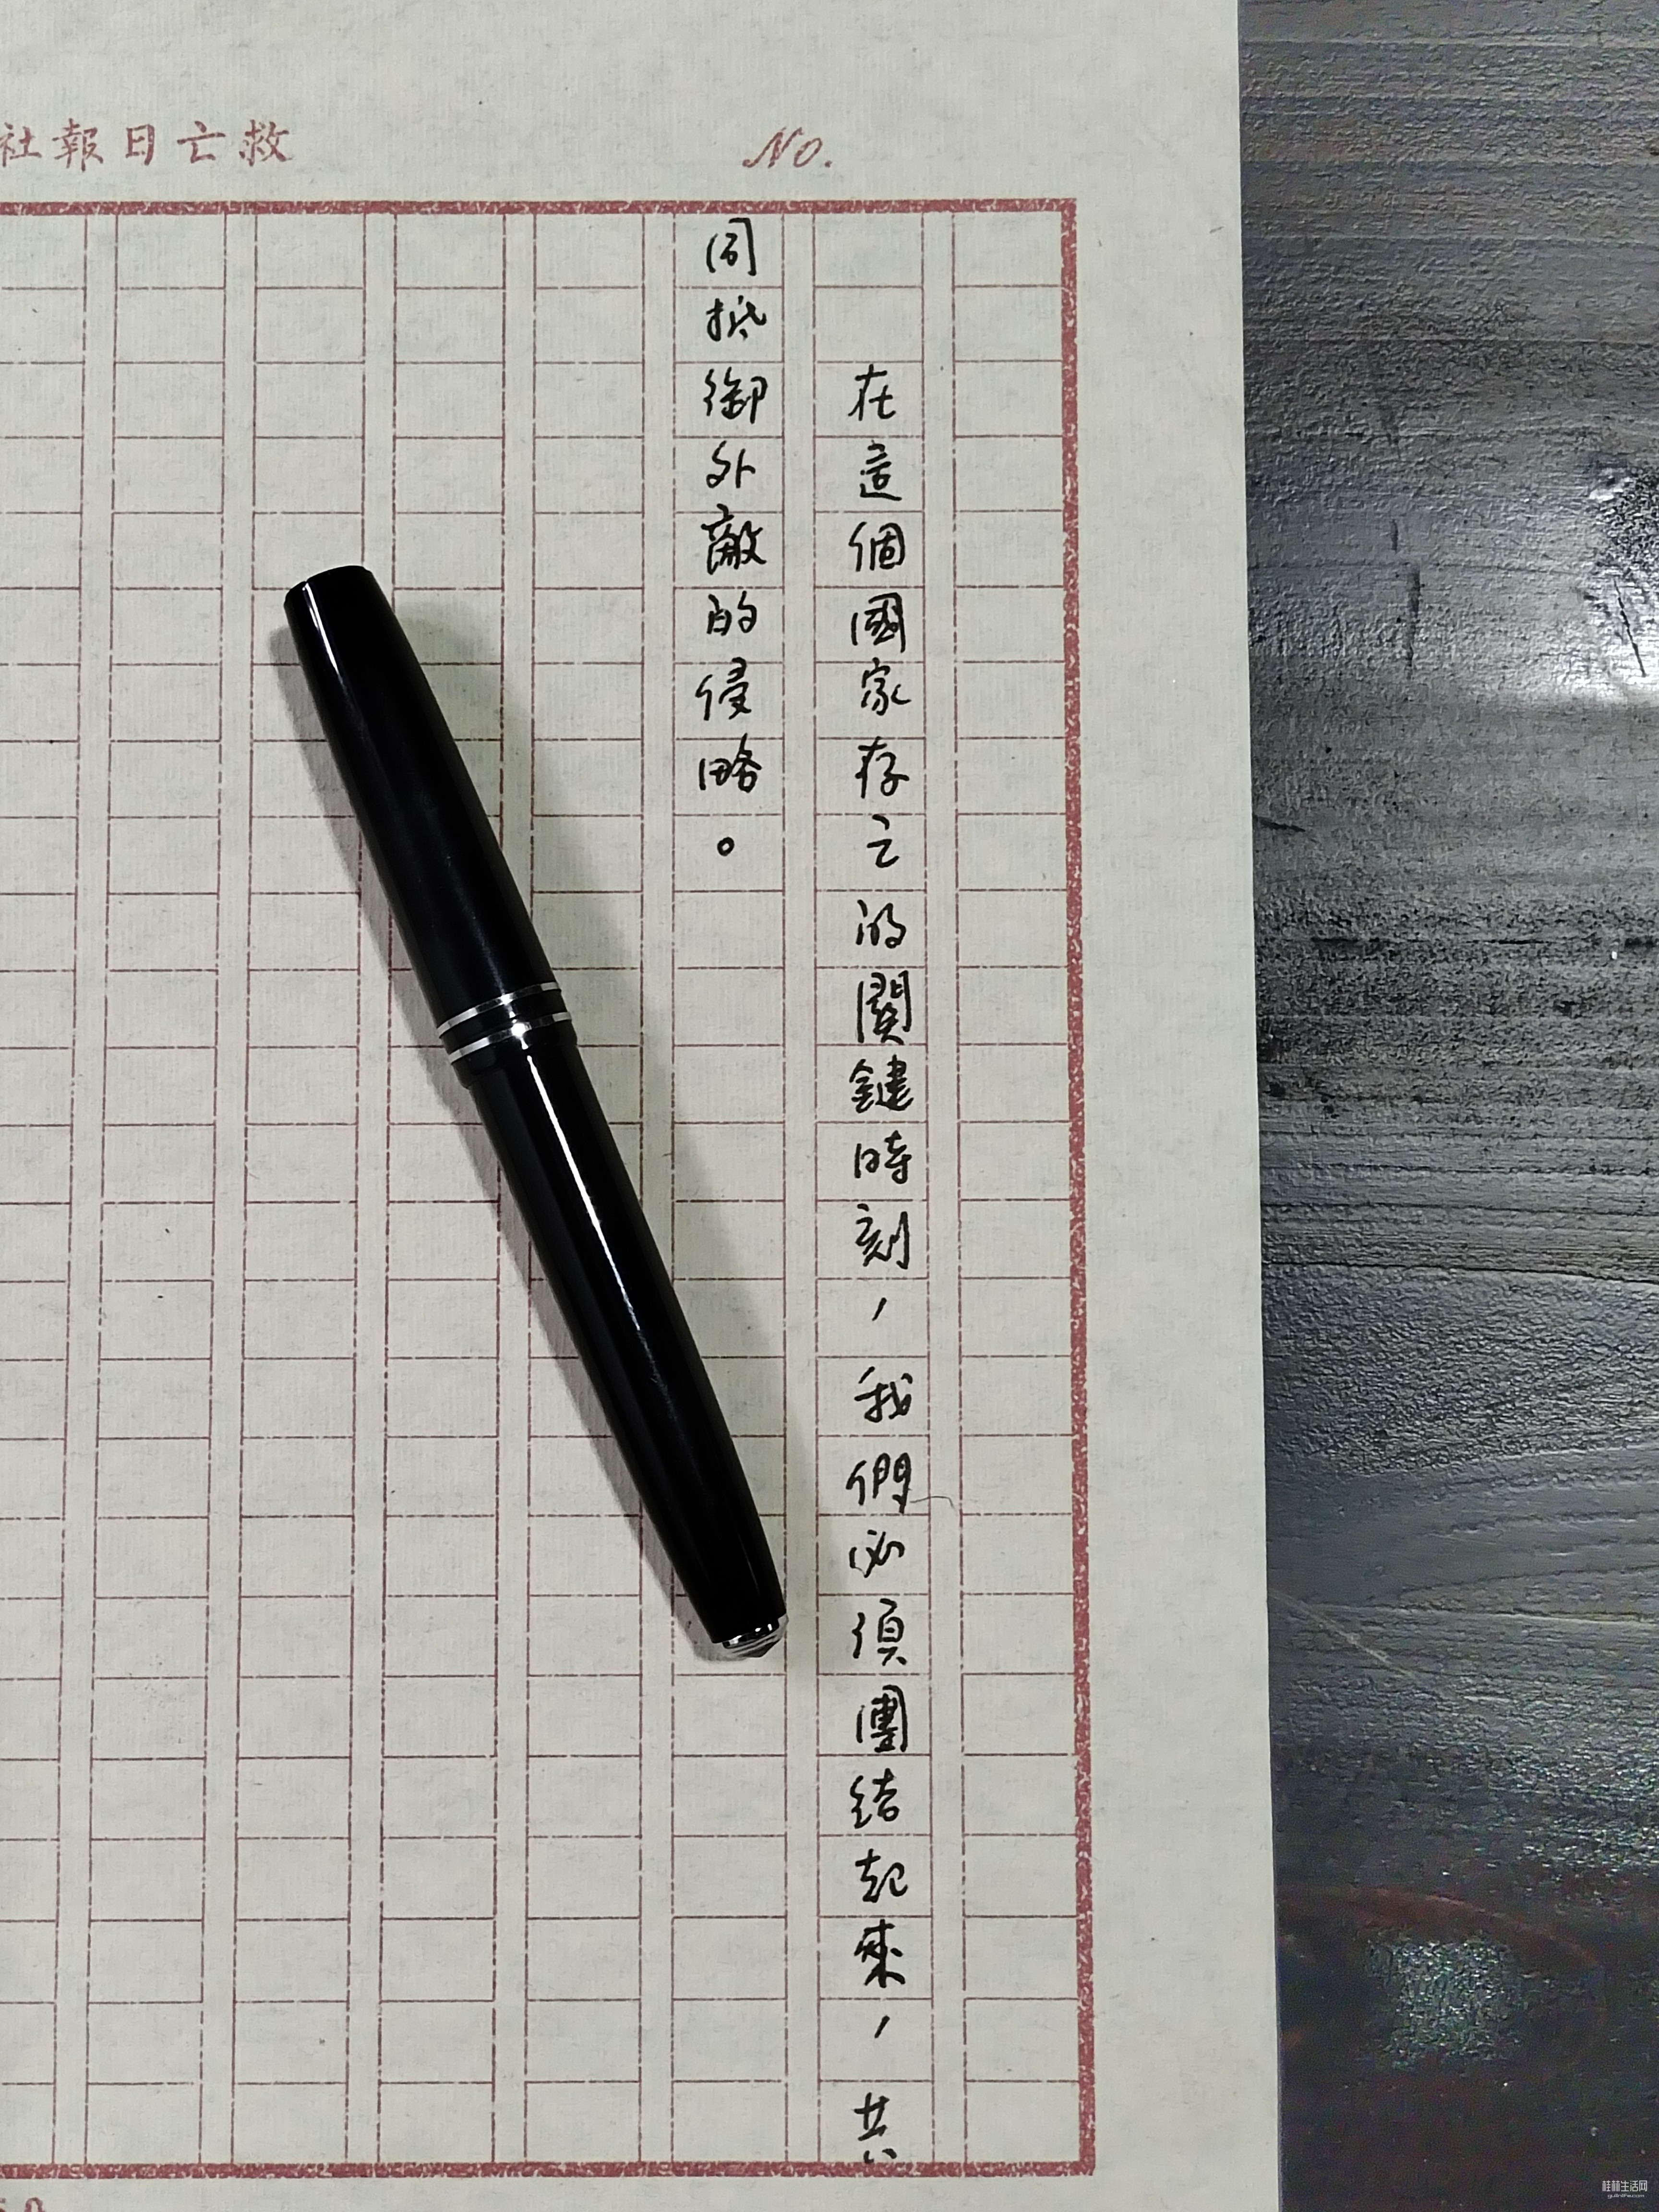 社報日亡救
No.
在這個國家存亡的關鍵時刻，我們必須團結起來，共
同抵御外敵的侵略。
桂林生活网